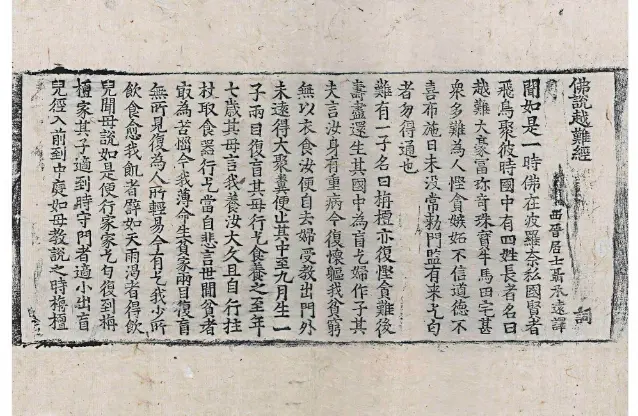 佛說越難經
西晉居士聶承遠譯 詞
聞如是一時佛在波羅奈私國賢者
飛鳥聚彼時國中有四姓長者名曰
越難大豪富珎奇珠寶牛馬田宅甚
衆多難為人慳貪嫉妬不信道德不
喜布施日未没常勑門監有来乞匃
者勿得通也
難有一子名曰栴檀亦復慳貪難後
壽盡還生其國中為盲乞婦作子其
夫言汝身有重病今復懷軀我貧窮
無以衣食汝便自去婦受教出門外
未遠得大聚糞便止其中至九月生一
子兩目復盲其母行乞食養之至年
七歲其母言我養汝大久且自行拄
杖取食器行乞當自悲言世間貧者
㝡為苦惱今我薄命生貧家兩目復盲
無所見復為人所輕易今有乞我少所
飲食愈我飢者譬如天雨渴者得飲
兒聞母說如是便行家家乞匃復到栴
檀家其子適到時守門者適小出盲
兒徑入前到中庭如母教說之時栴檀